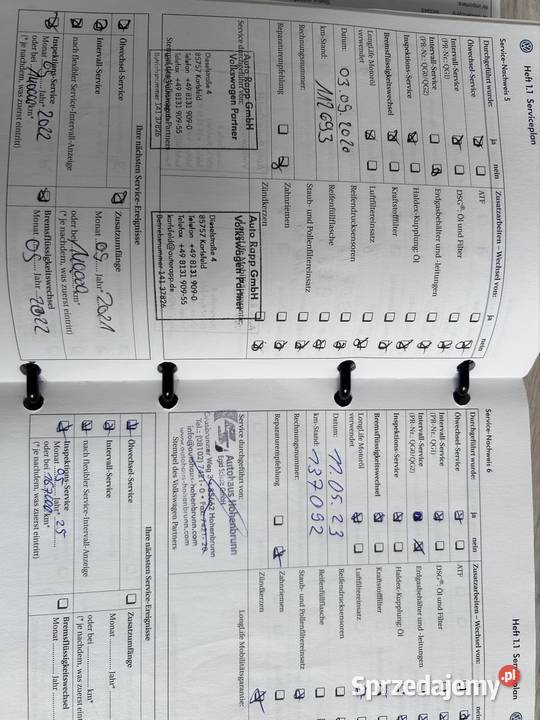 Heft 1.1 Serviceplan
Service-Nachweis 5
Durchgeführt wurde:
ja
nein
Ölwechsel-Service
Intervall-Service
(PR-Nr.: QG1)
Intervall-Service
(PR-Nr.: QG0/QG2)
Inspektions-Service
Bremsflüssigkeitswechsel
LongLife Motoröl
verwendet
Datum: 03.09.2020
km-Stand: 112693
Rechnungsnummer:
Reparaturempfehlung
Service durchgeführt von:
Auto Rapp GmbH
Volkswagen Partner
Dieselstraße 4
85757 Karlsfeld
Telefon +49 8131 909-0
Telefax +49 8131 909-55
Stempel des Volkswagen Partners
Zusatzarbeiten – Wechsel von:
ja
nein
ATF
DSG®: Öl und Filter
Erdgasbehälter und -leitungen
Haldex-Kupplung: Öl
Kraftstofffilter
Luftfiltereinsatz
Reifendrucksensoren
Reifenfüllflasche
Staub- und Pollenfiltereinsatz
Zahnriemen
Zündkerzen
Auto Rapp GmbH
Volkswagen Partner
Dieselstraße 4
85757 Karlsfeld
Telefon +49 8131 909-0
Telefax +49 8131 909-55
karlsfeld@autorapp.de
Betriebsnummer 141 37826
Ihre nächsten Service-Ereignisse
Ölwechsel-Service
Intervall-Service
nach flexibler Service-Intervall-Anzeige
Inspektions-Service
Monat Jahr* 2022
oder bei km*
(* je nachdem, was zuerst eintritt)
Zusatzumfänge
Monat 09 Jahr* 2021
oder bei km*
(* je nachdem, was zuerst eintritt)
Bremsflüssigkeitswechsel
Monat 09 Jahr 2022
Heft 1.1 Serviceplan
Service-Nachweis 6
Durchgeführt wurde:
ja
nein
Ölwechsel-Service
Intervall-Service
(PR-Nr.: QG1)
Intervall-Service
(PR-Nr.: QG0/QG2)
Inspektions-Service
Bremsflüssigkeitswechsel
LongLife Motoröl
verwendet
Datum: 11.05.23
km-Stand: 137092
Rechnungsnummer:
Reparaturempfehlung
Service durchgeführt von:
Autohaus Hohenbrunn
Hohenbrunn
Stempel des Volkswagen Partners
Zusatzarbeiten – Wechsel von:
ja
nein
ATF
DSG®: Öl und Filter
Erdgasbehälter und -leitungen
Haldex-Kupplung: Öl
Kraftstofffilter
Luftfiltereinsatz
Reifendrucksensoren
Reifenfüllflasche
Staub- und Pollenfiltereinsatz
Zahnriemen
Zündkerzen
LongLife Mobilitätsgarantie:
Ihre nächsten Service-Ereignisse
Ölwechsel-Service
Intervall-Service
nach flexibler Service-Intervall-Anzeige
Inspektions-Service
Monat 05 Jahr* 25
oder bei 167.000 km*
(* je nachdem, was zuerst eintritt)
Zusatzumfänge
Monat Jahr*
oder bei km*
(* je nachdem, was zuerst eintritt)
Bremsflüssigkeitswechsel
Monat Jahr
Sprzedajemy.pl